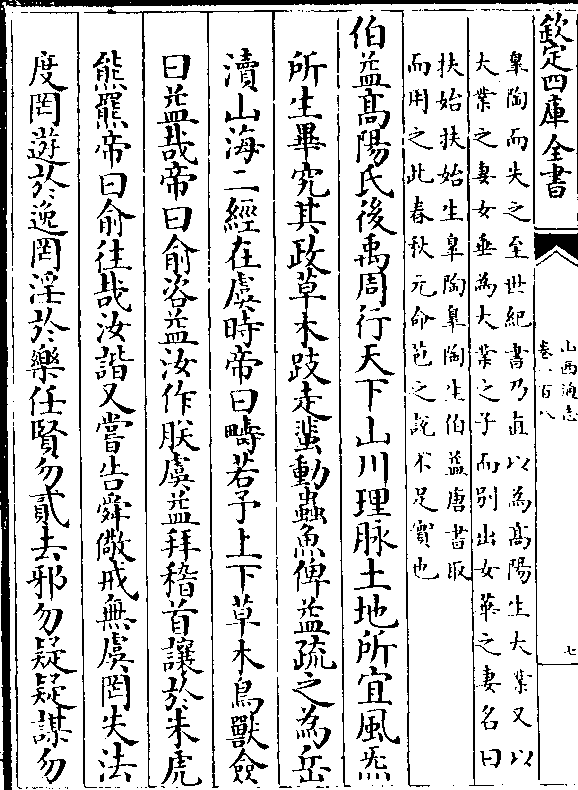 欽定四庫全書
山西通志
卷一百八
七
臯陶而失之至世紀書乃直以為髙陽生大業又以
大業之妻女垂為大業之子而别出女華之妻名曰
扶始扶始生臯陶臯陶生伯益唐書取
而用之此春秋元命苞之説不足實也
伯益髙陽氏後禹周行天下山川理脉土地所宜風炁
所生畢究其政草木跂走蜚動蟲魚俾益疏之為岳
瀆山海二經在虞時帝曰疇若予上下草木鳥獸僉
曰益哉帝曰俞咨益汝作朕虞益拜稽首讓於朱虎
熊羆帝曰俞往哉汝諧又嘗告舜儆戒無虞罔失法
度罔遊於逸罔淫於樂任賢勿貳去邪勿疑疑謀勿